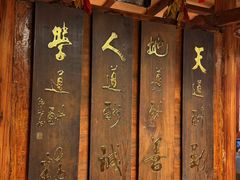 天道酬勤
地道酬善
人道酬誠
學道酬